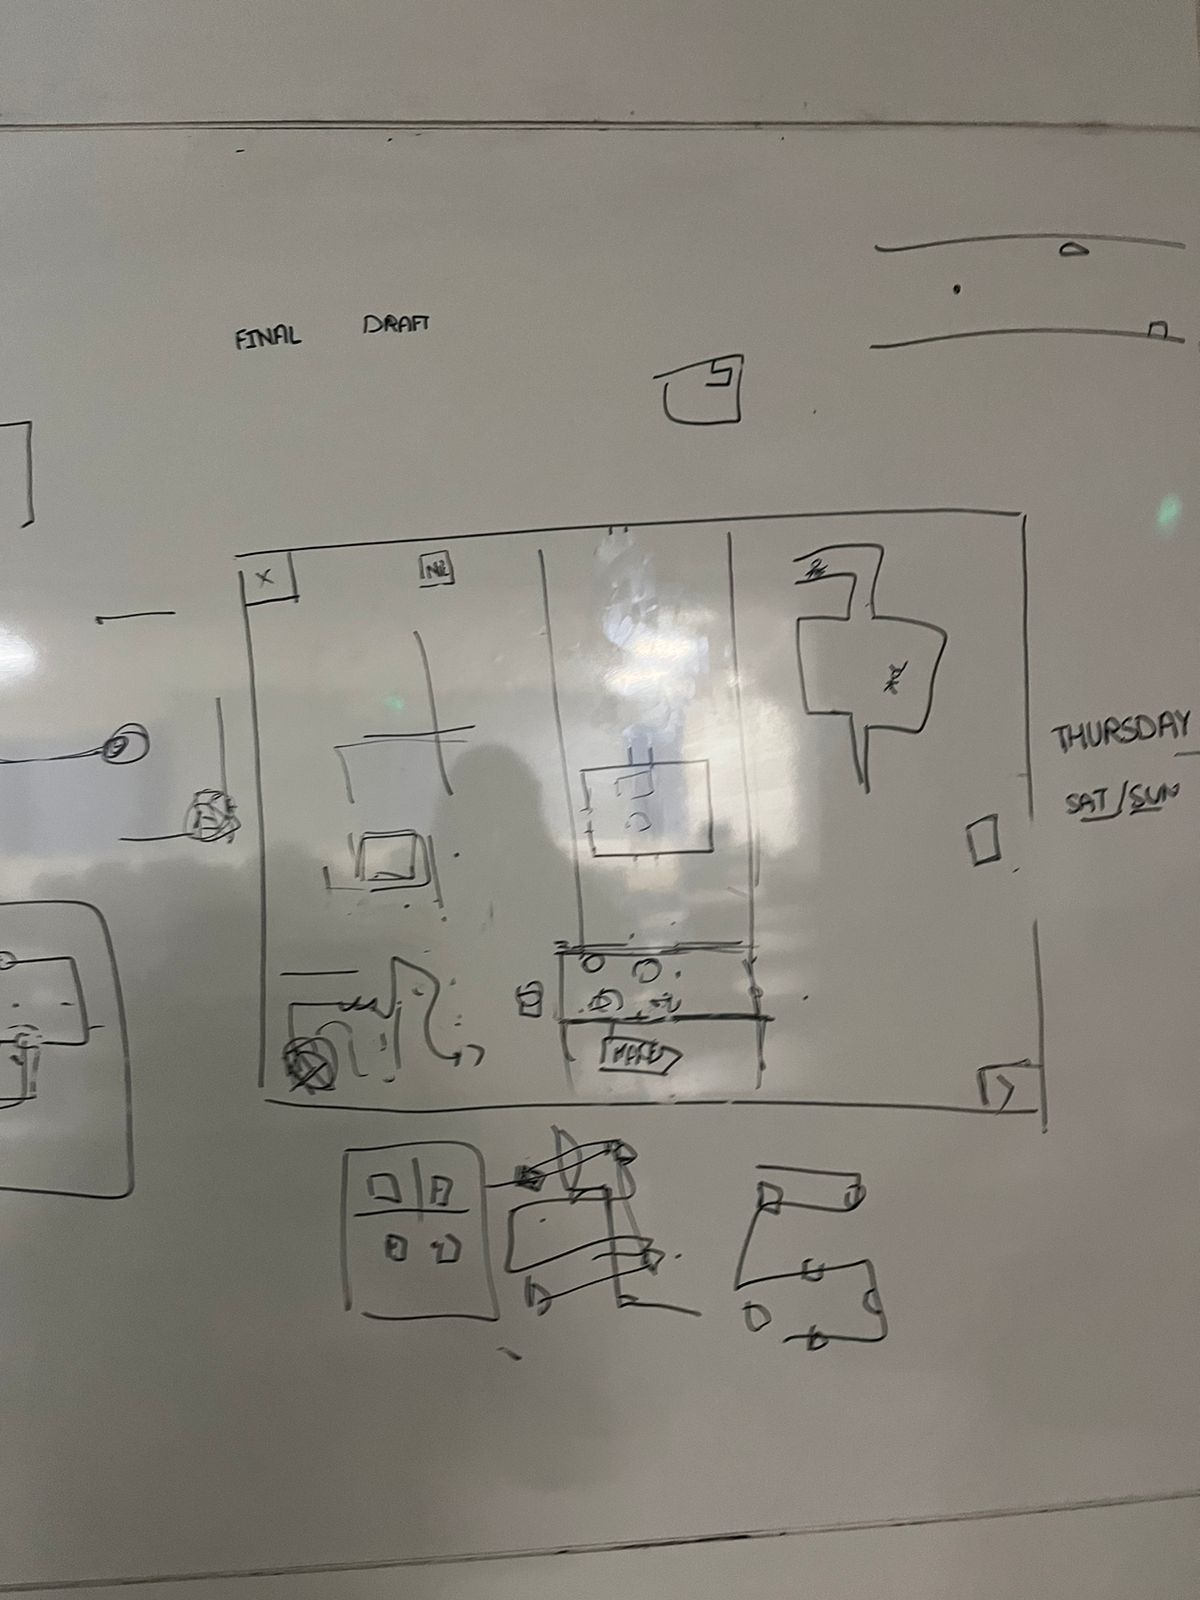 FINAL DRAFT
X
THURSDAY
SAT/SUN